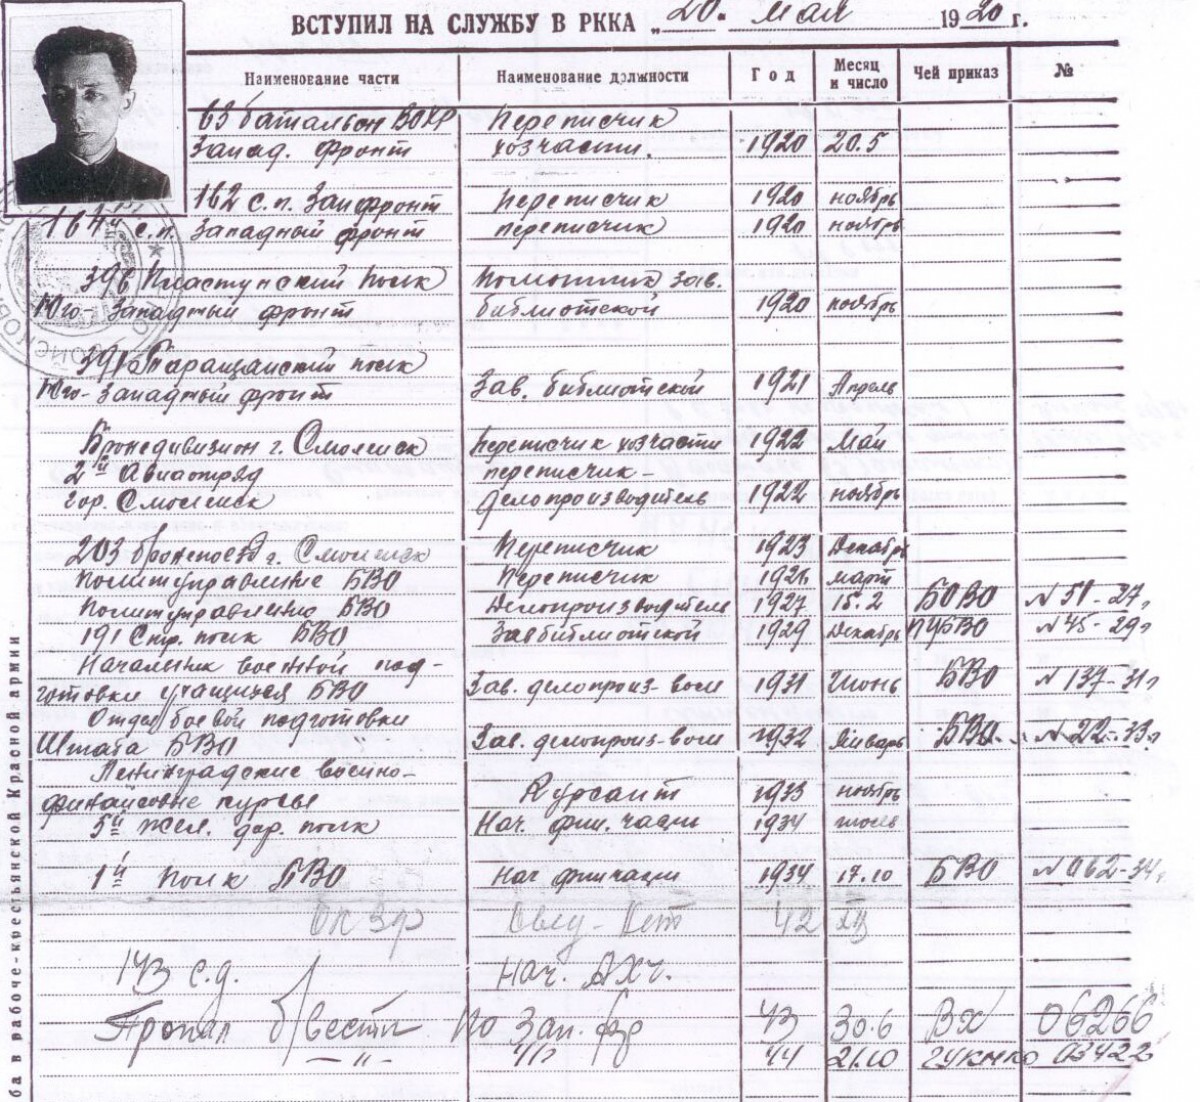 ВСТУПИЛ НА СЛУЖБУ В РККА „20. Мая 1920 г.
Наименование части Наименование должности Год Месяц и число Чей приказ №
63 батальон ВОХР Переписчик
Запад. фронт хозчасти. 1920 20.5
162 с.п. Запфронт Переписчик 1920 ноябрь
164й с.п. Западный фронт переписчик 1920 ноябрь
396 Пластунский полк Помощник зав.
Юго-Западный фронт библиотекой 1920 ноябрь
391 Таращанский полк
Юго-Западный фронт Зав. библиотекой 1921 Апрель
Бронедивизион г. Смоленск Переписчик хозчасти 1922 Май
2й Авиаотряд переписчик-
гор. Смоленск делопроизводитель 1922 ноябрь
203 бронепоезд г. Смоленск Переписчик 1923 Декабрь
Политуправление БВО Переписчик 1926 март
Политуправление БВО Делопроизводитель 1927 15.2 БОВО №51-27г
191 Стр. полк БВО Завбиблиотекой 1929 Декабрь ПУБВО №45-29г
Начальник военной под-
готовки учащихся БВО Зав. делопроиз-вом 1931 Июнь БВО №137-31г
Отдел боевой подготовки
Штаба БВО Зав. делопроиз-вом 1932 Январь БВО. №22-33г
Ленинградские военно-
финансовые курсы Курсант 1933 ноябрь
5й жел. дор. полк Нач. фин. части 1934 июль
1й полк БВО Нач финчасти 1934 17.10 БВО №062-34г
42
143 с.д. Нач. АХЧ.
Пропал б/вести по Зап. фр 43 30.6 Вх 06266
— " — 44 21.10 ГУКНКО 03422
ба в рабоче-крестьянской Красной армии